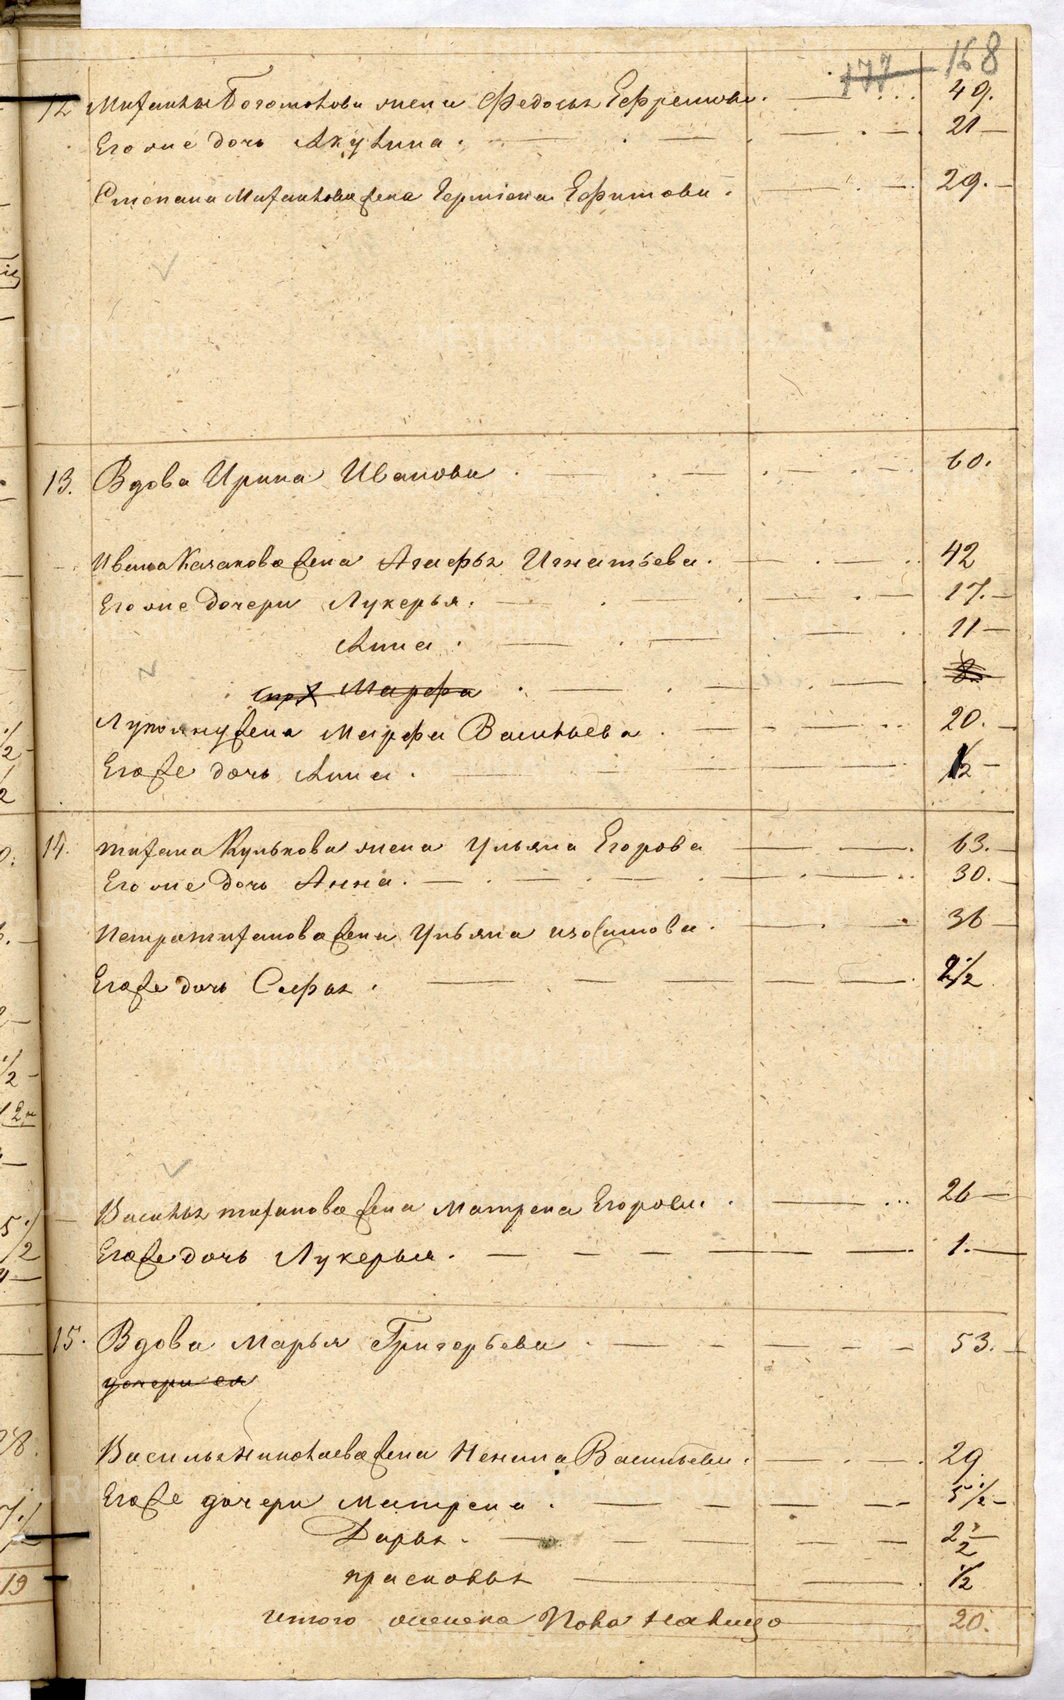 177 168
12 Михайлы Богомолова жена Федосья Ефремова. 49.
Его же дочь Акулина. 21
Степана Михайлова жена Ефимова. 29.
13. Вдова Ирина Иванова 60.
Ивана Казакова жена Агафья Игнатьева. 42
Его же дочери Лукерья. 17.
Анна. 11
Марфа
Лукояна жена Марфа Васильева. 20.
Его же дочь Анна. 1/2
14. жена Ульяна Егорова 63.
Его же дочь Анна. 30.
Петра жена Ульяна Изосимова. 36
Его же дочь Софья. 2 1/2
Василья жена Матрена Егорова. 26
Его же дочь Лукерья. 1.
15. Вдова Марья Григорьева 53.
дочери ея
Василья Николаева жена Ненила Васильева. 29
Его же дочери Матрена. 5 1/2
Дарья. 2 1/2
Прасковья 1/2
Итого женска пола на лицо 20.